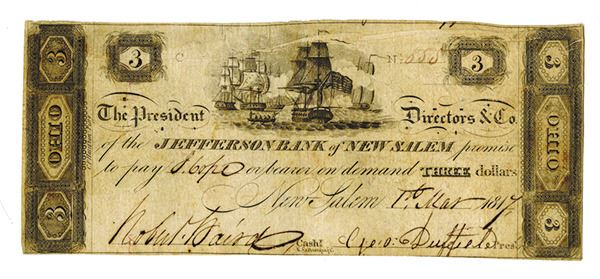 3 C No. 3
OHIO
The President Directors & Co.
of the JEFFERSON BANK of NEW SALEM promise
to pay or bearer on demand THREE dollars
New Salem 1st Mar 1817
Robert Baird Cash! Geo: Duffield Pres.
3 3
OHIO
3 3